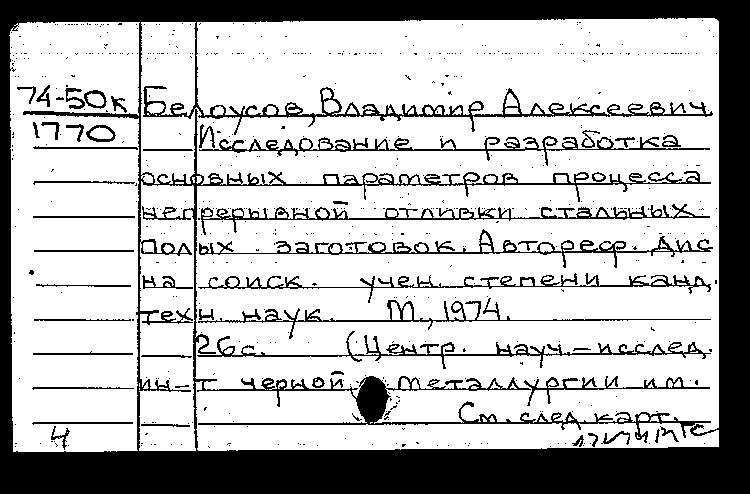 74-50к Белоусов, Владимир Алексеевич.
1770 Исследование и разработка
основных параметров процесса
непрерывной отливки стальных
полых заготовок. Автореф. дис
на соиск. учен. степени канд.
техн. наук. М., 1974.
26с. (Центр. науч.-исслед.
ин-т черной металлургии им.
См. след. карт.
4